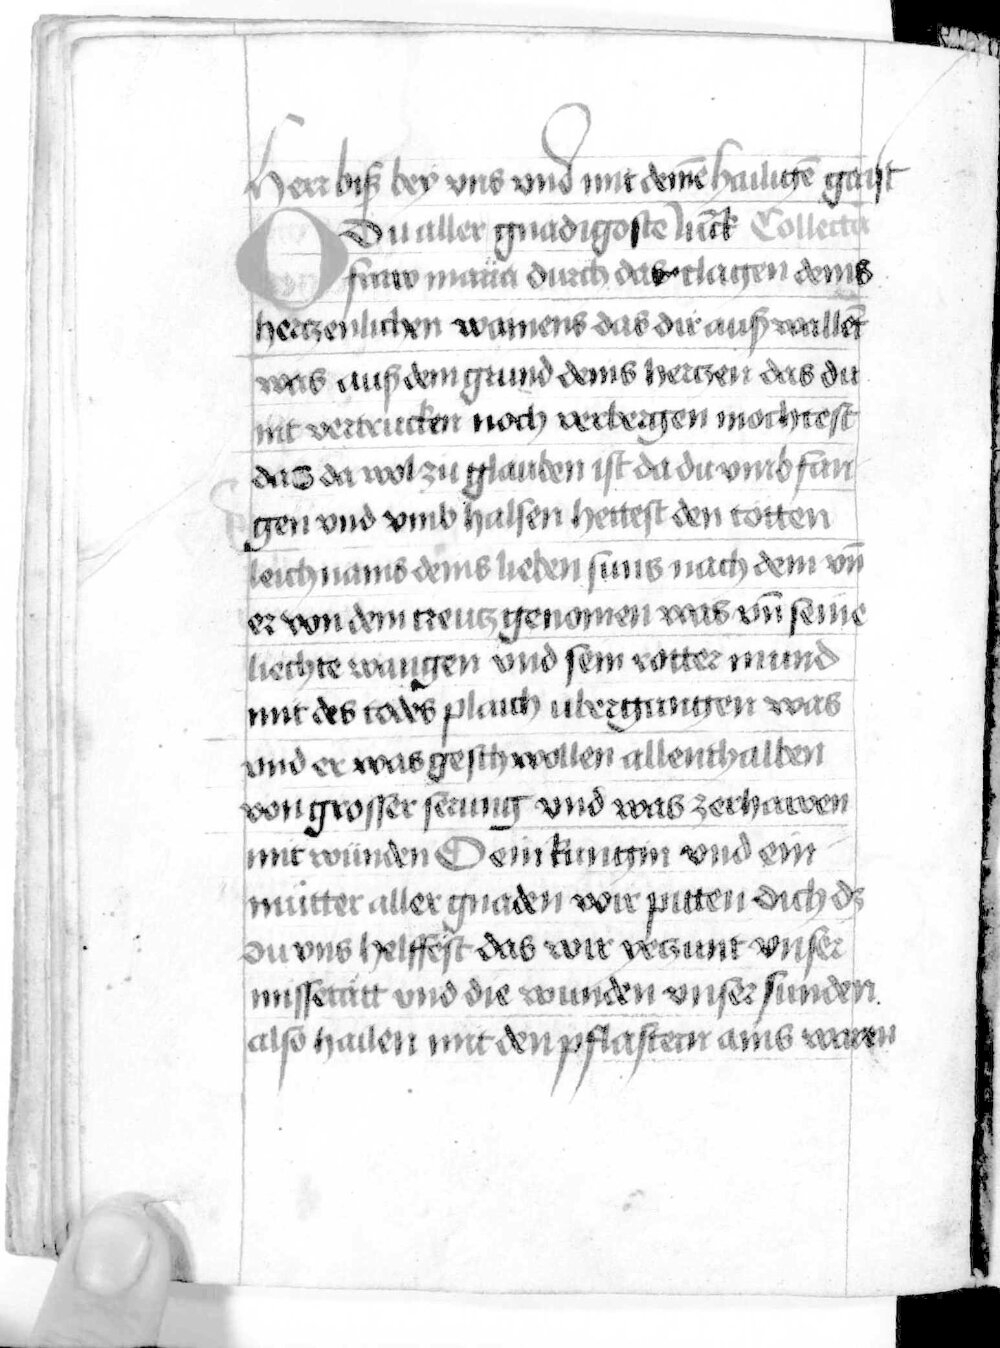 Herr biß bey vns vnd mit deinē hailigē gaist
O Du aller gnadigoste Collecta
fraw maria durch das clagen deins
hertzenlichen wainens das dir auß wallēt
was auß dem grund deins hertzen das du
nit vertrucken noch verbergen mochtest
das da wol zu glauben ist da du vmb fan
gen vnd vmb halsen hettest den totten
leichnams deins lieben suns nach dem vn̄
er von dem creutz genomen was vn̄ seine
liechte wangen vnd sein rotter mund
mit des todes plaich vbergangen was
vnd er was geschwollen allenthalben
von grosser serung vnd was zerhawen
mit wunden O ein kungin vnd ein
mutter aller gnaden wir pitten dich dz
du vns helffest das wir yetzunt vnser
missetatt vnd die wunden vnser sunden
also hailen mit den pflastern ains waren